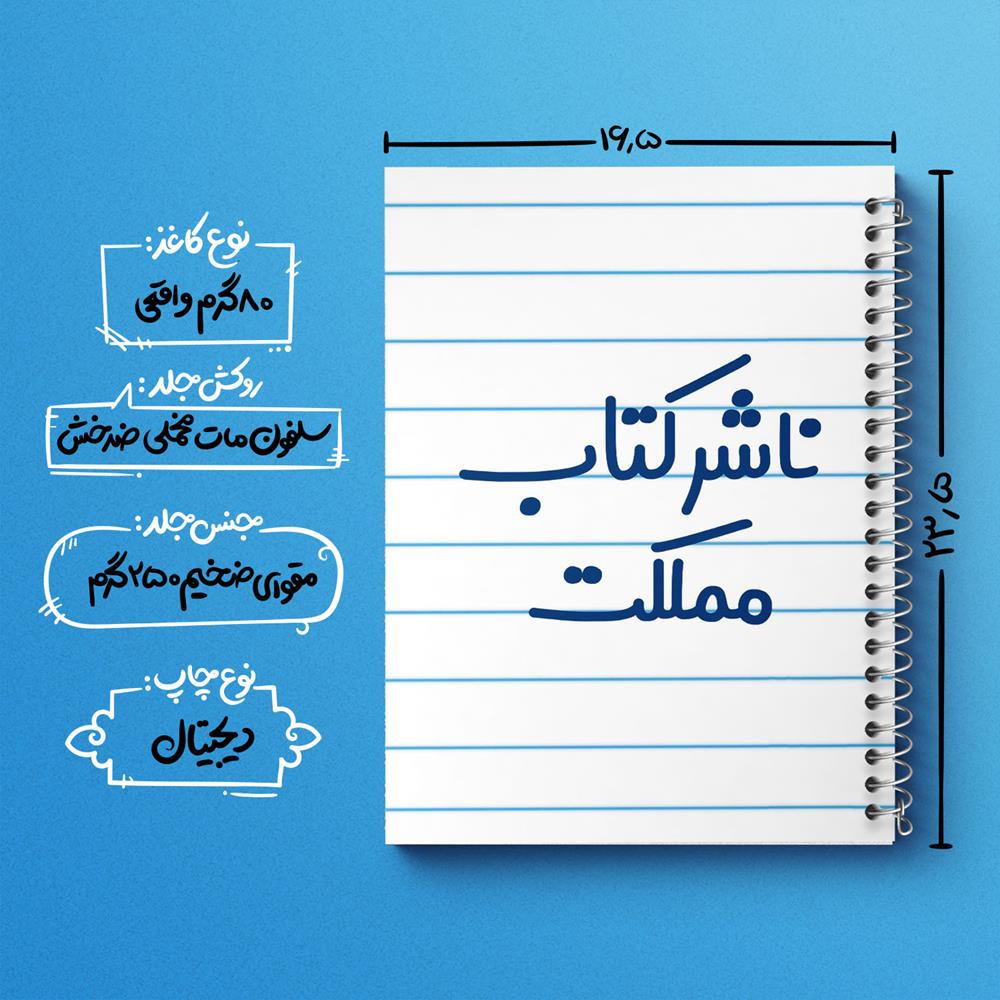 ۱۶٫۵
۲۳٫۵
ناشر کتاب
مملکت
نوع کاغذ:
۸۰ گرم واقعی
روکش جلد:
سلفون مات مخملی ضدخش
جنس جلد:
مقوای ضخیم ۲۵۰ گرم
نوع چاپ:
دیجیتال